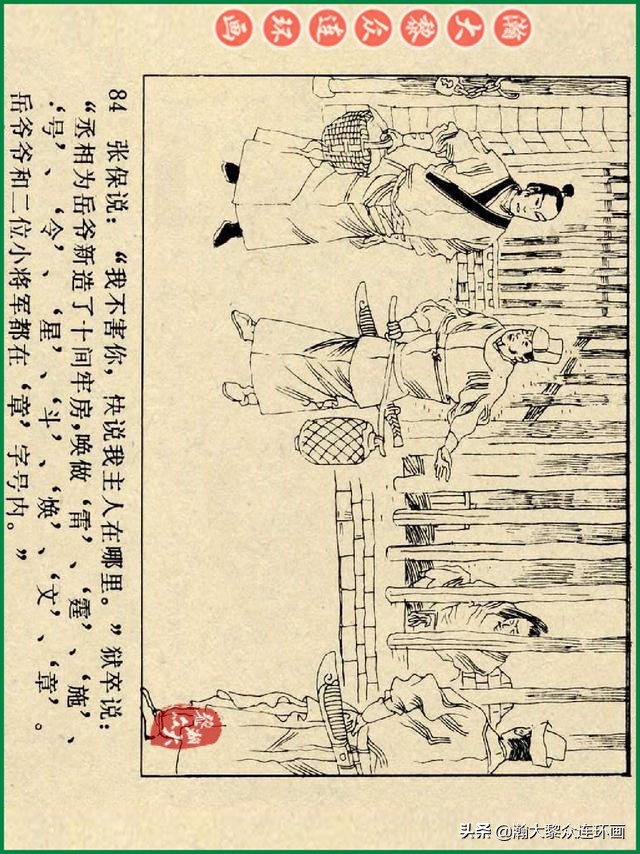 瀚大黎众连环画
84 张保说：“我不害你，快说我主人在哪里。”狱卒说：
“丞相为岳爷新造了十间牢房，唤做‘雷’、‘霆’、‘施’、
‘号’、‘令’、‘星’、‘斗’、‘焕’、‘文’、‘章’。
岳爷爷和二位小将军都在‘章’字号内。”
头条 @瀚大黎众连环画